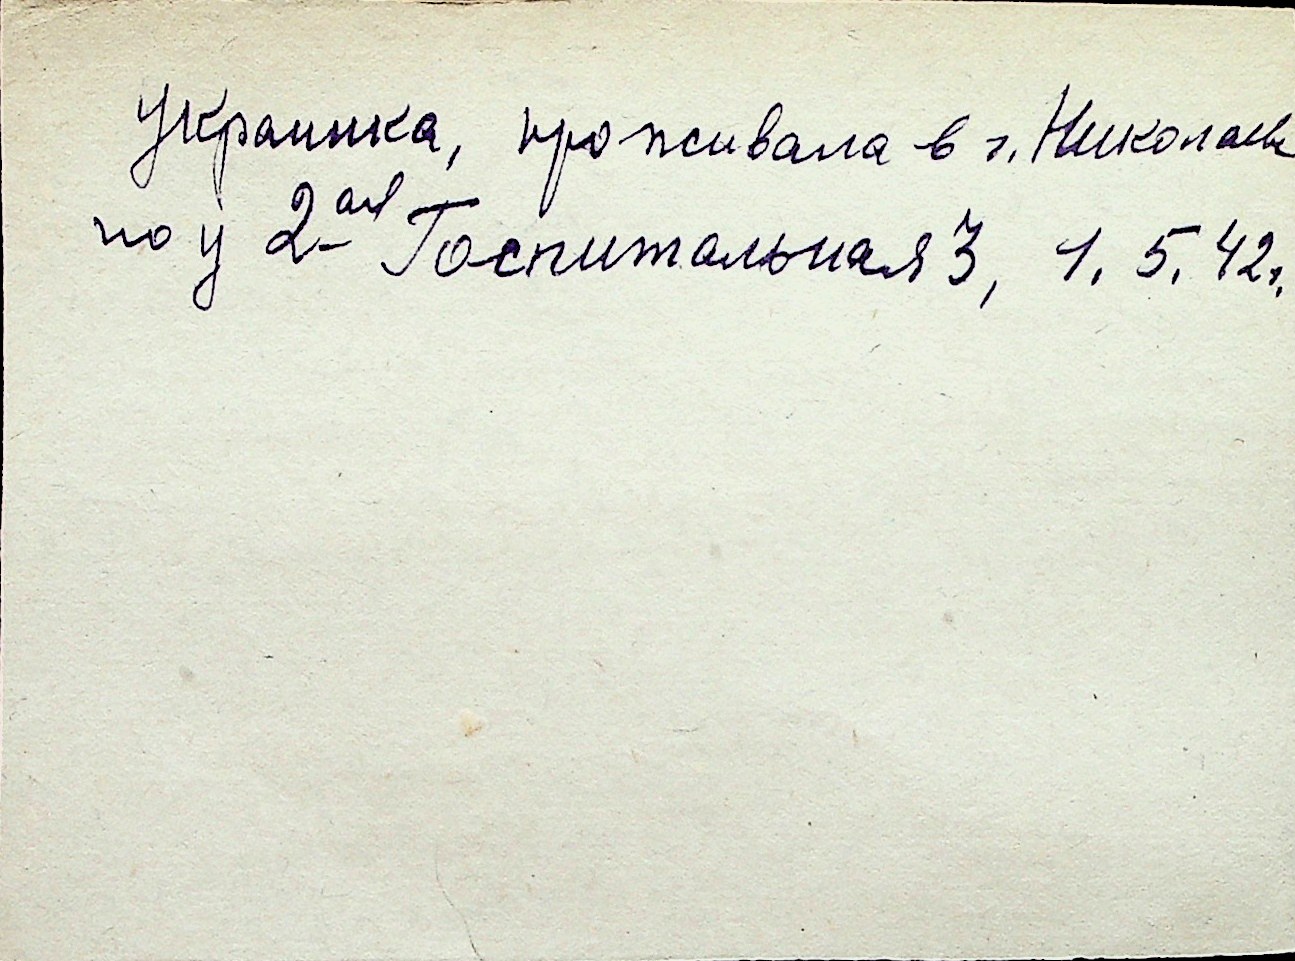 Украинка, проживала в г. Николаев
по у 2-ая Госпитальная 3, 1.5.42г.